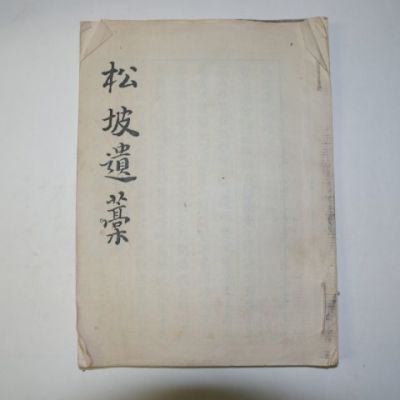 松坡遺藁